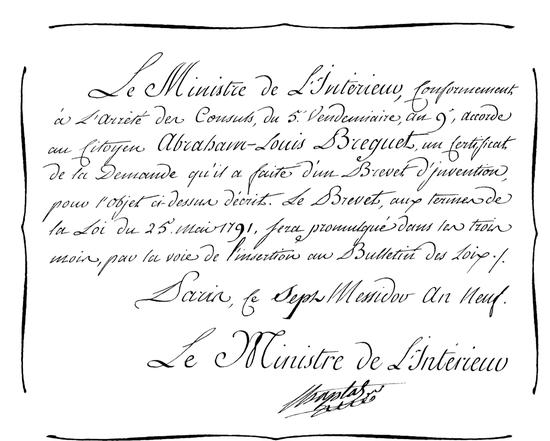 Le Ministre de L'Intérieur, Conformement
à L'arrêté des Consuls, du 5. Vendemiaire, an 9e, accorde
au Citoyen Abraham-Louis Breguet, un Certificat
de la Demande qu'il a faite d'un Brevet d'Invention,
pour l'objet ci-dessus décrit. Le Brevet, aux termes de
la Loi du 25. mai 1791, sera promulgué dans les trois
mois, par la voie de l'insertion au Bulletin des Loix ./.
Paris, Ce Sept Messidor An Neuf.
Le Ministre de L'Intérieur
Chaptal